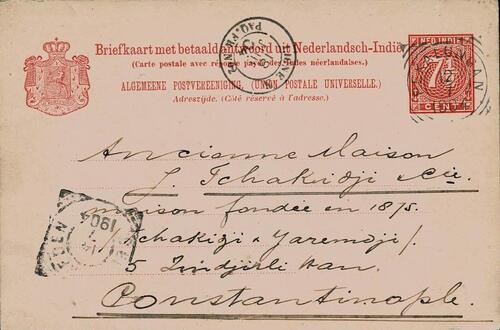 Briefkaart met betaald antwoord uit Nederlandsch-Indië.
(Carte postale avec réponse payée des Indes néerlandaises.)
ALGEMEENE POSTVEREENIGING (UNION POSTALE UNIVERSELLE.)
Adreszijde. (Côté réservé à l'adresse.)
NED-INDIE
7½
CENT
Ancienne Maison
J. Tchakidji & Cie.
maison fondée en 1875.
Tchakigi & Yaremdji/.
5 Zindjirli Han
Constantinople.
1904